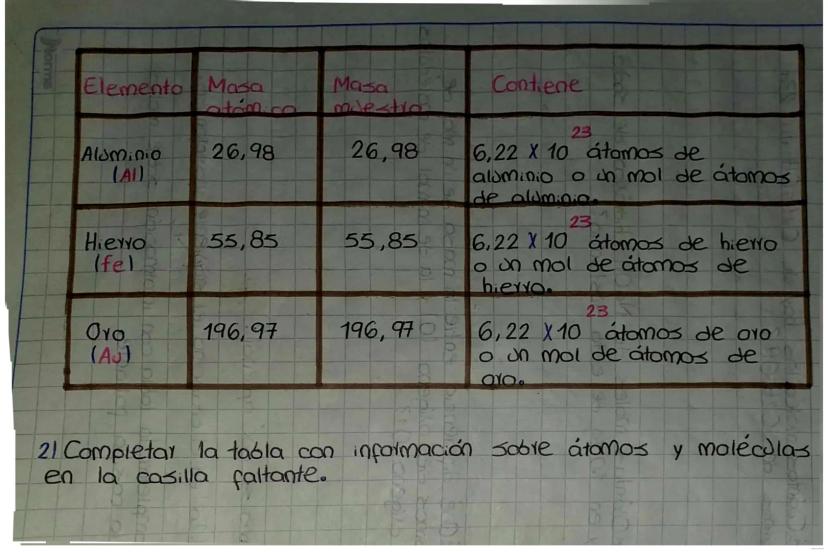 Elemento Masa atómica Masa muestra Contiene
Aluminio (Al) 26,98 26,98 6,22 X 10²³ átomos de
aluminio o un mol de átomos
de aluminio.
Hierro (fe) 55,85 55,85 6,22 X 10²³ átomos de hierro
o un mol de átomos de
hierro.
Oro (Au) 196,97 196,97 6,22 X 10²³ átomos de oro
o un mol de átomos de
oro.
2) Completar la tabla con información sobre átomos y moléculas
en la casilla faltante.